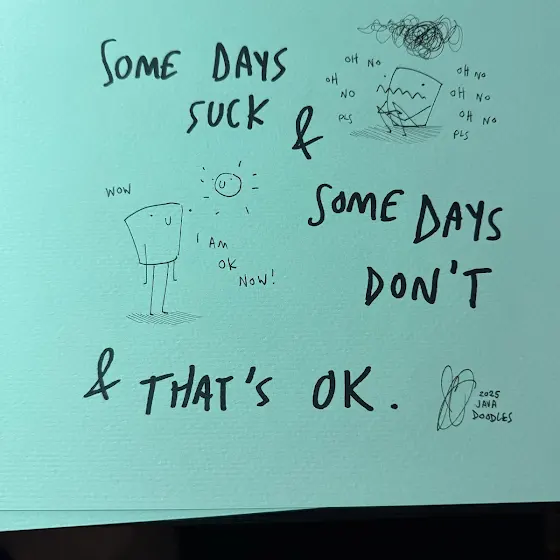 SOME DAYS
SUCK &
OH NO
OH
NO
PLS
OH NO
OH NO
OH NO
PLS
WOW
I AM
OK
NOW!
SOME DAYS
DON'T
& THAT'S OK.
2025
JAVA
DOODLES